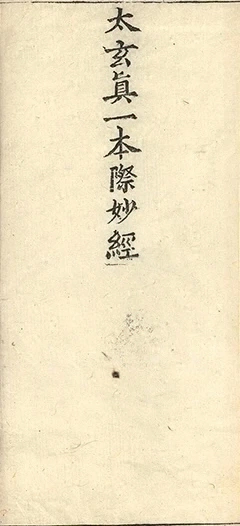 太玄眞一本際妙經